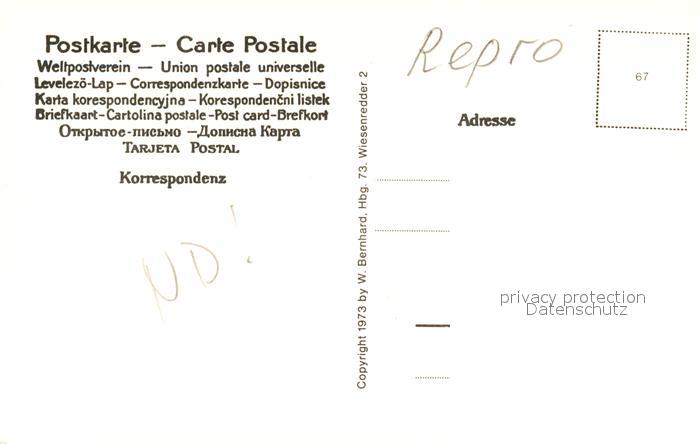 Postkarte – Carte Postale
Weltpostverein — Union postale universelle
Levelező-Lap – Correspondenzkarte – Dopisnice
Karta korespondencyjna – Korespondenční listek
Briefkaart-Cartolina postale-Post card-Brefkort
Открытое-письмо –Дописна Карта
TARJETA POSTAL
Korrespondenz
ND!
Copyright 1973 by W. Bernhard, Hbg. 73. Wiesenredder 2
Repro
67
Adresse
privacy protection
Datenschutz